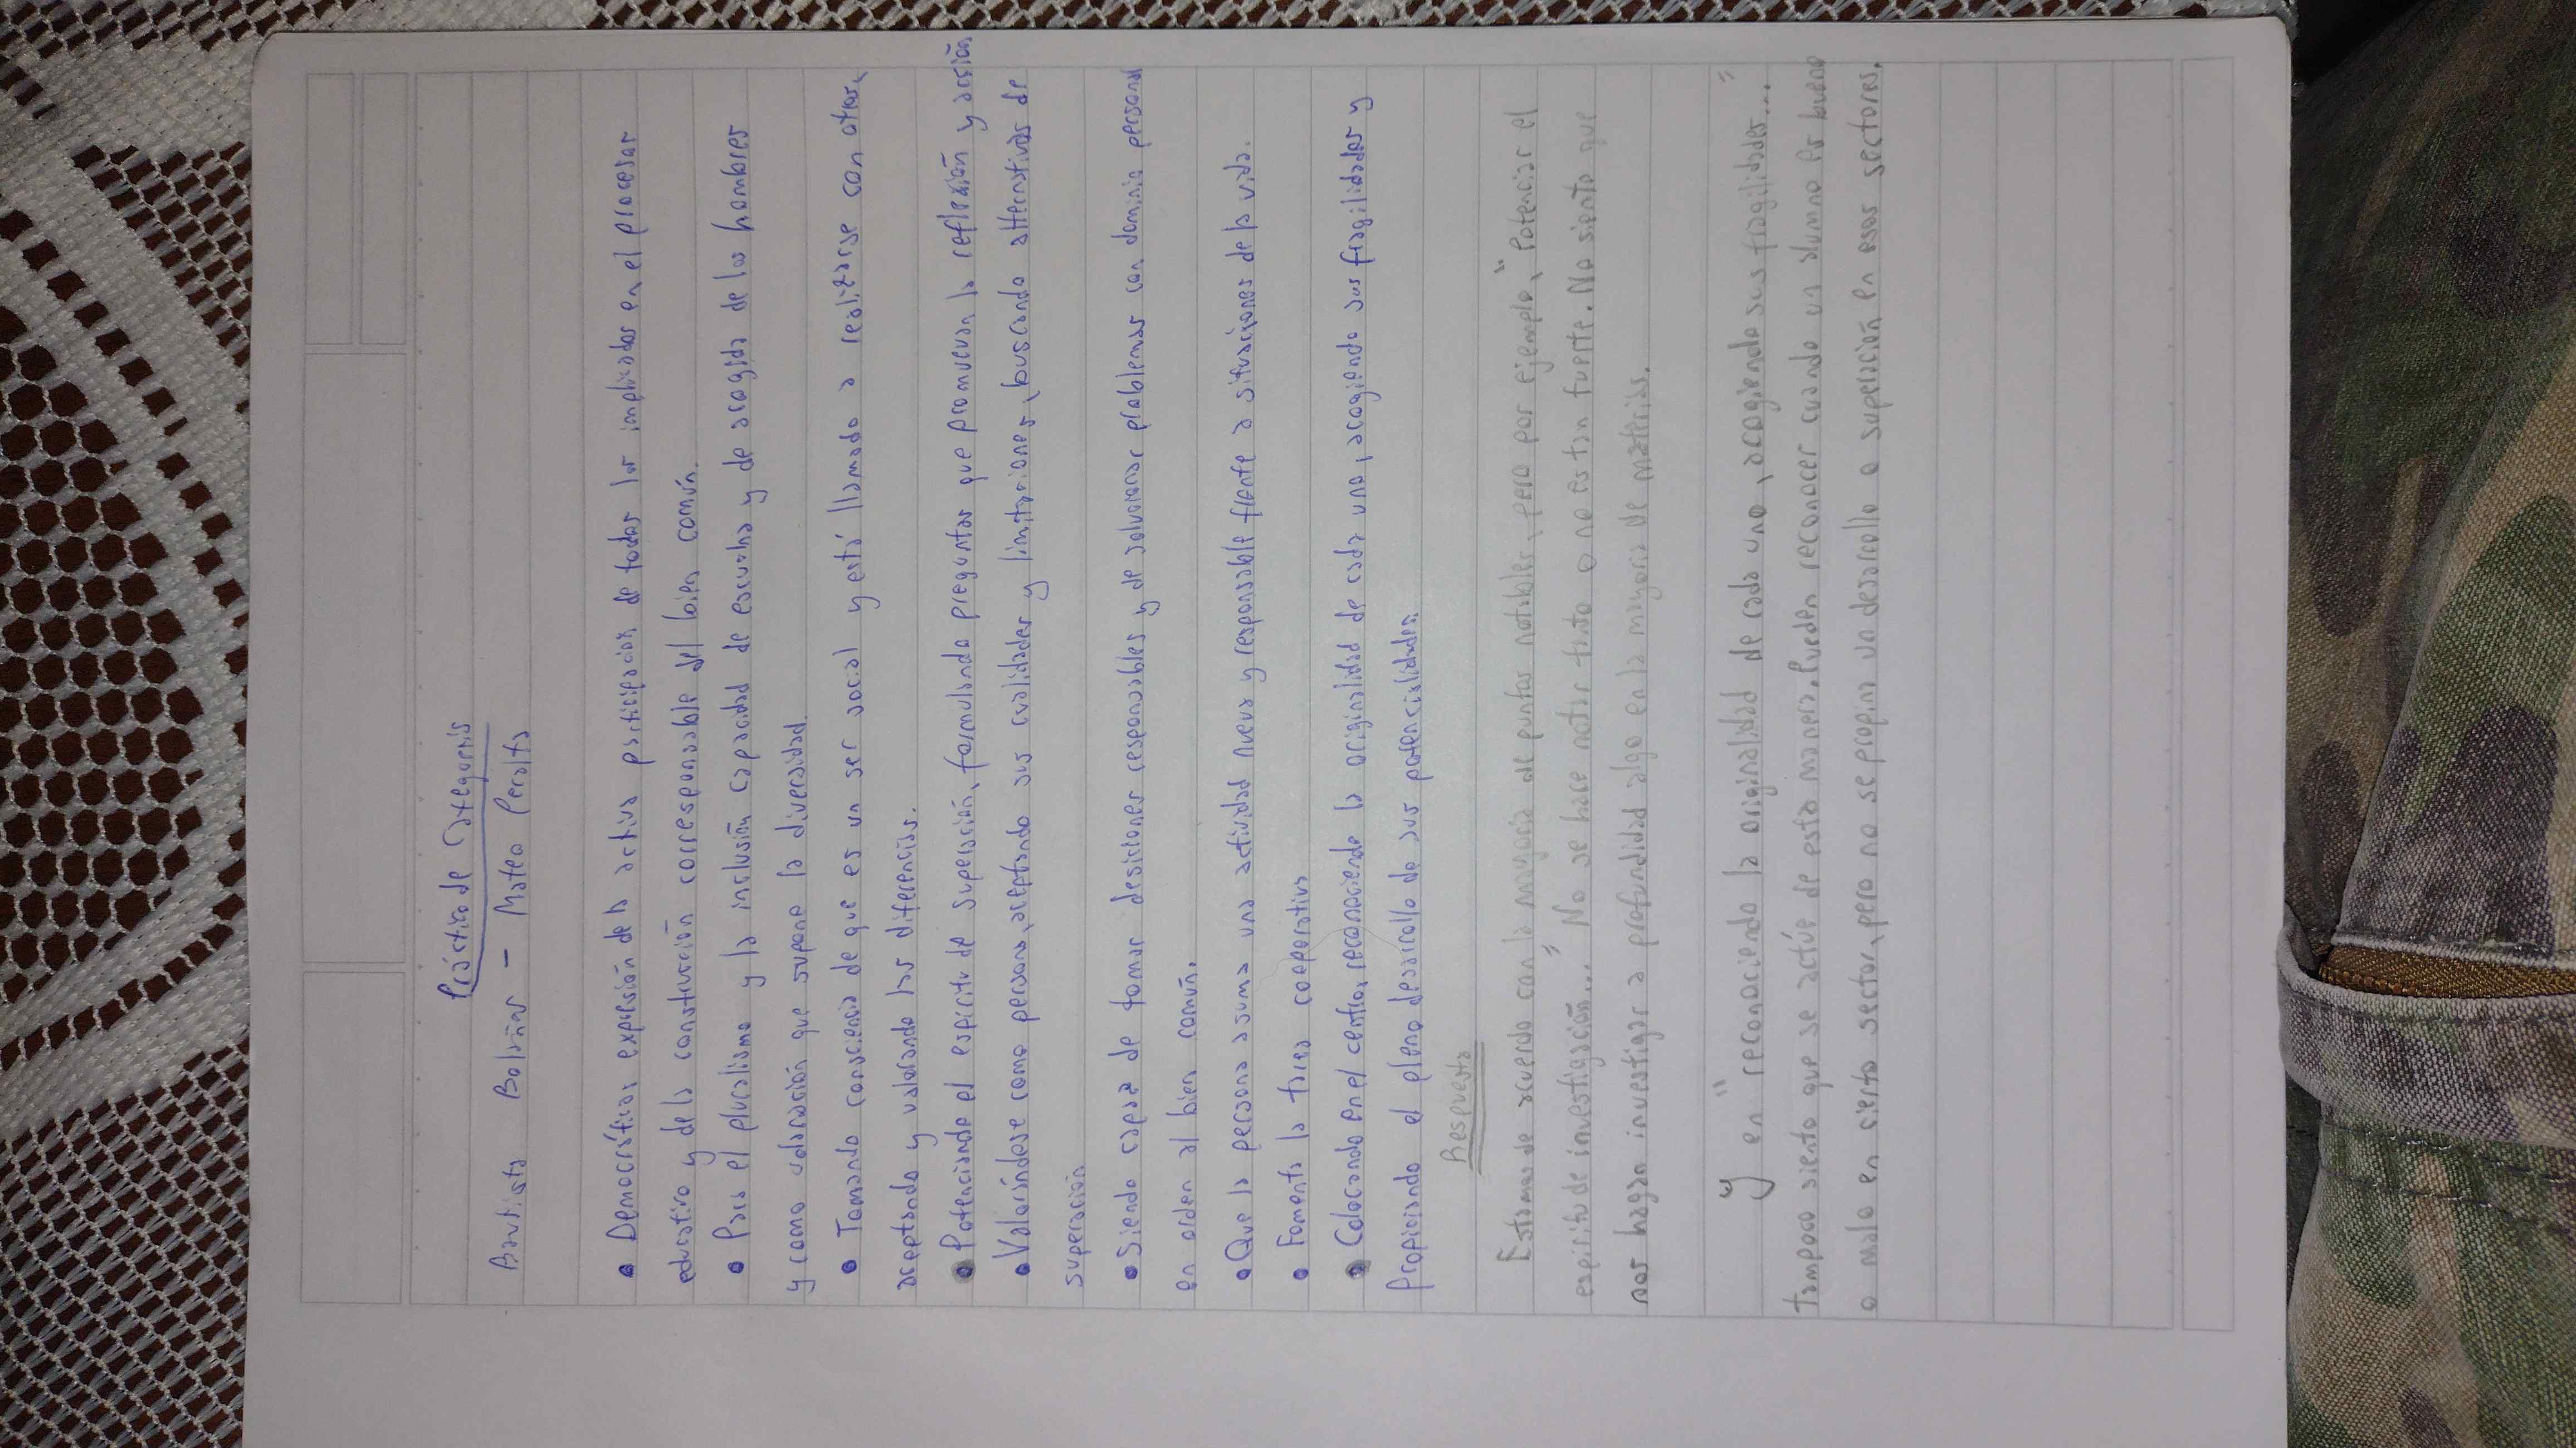 Práctico de Categoria
Bautista Bolaños - Mateo Peralta
• Democráticas expresión de la activa participación de todos los implicados en el procesar
educativo y de la construcción corresponsable del bien común.
• Para el pluralismo y la inclusión capacidad de escucha y de acogida de los hombres
y como valoración que supone la diversidad.
• Tomando consciencia de que es un ser social y está llamado a realizarse con otros,
aceptando y valorando las diferencias.
• Potenciando el espíritu de superación, formulando preguntas que promuevan la reflexión y acción
• Valorándose como persona, aceptando sus cualidades y limitaciones, buscando alternativas de
superación
• Siendo capaz de tomar desiciones responsables y de solucionar problemas con dominio personal
en orden al bien común.
• Que la persona asuma una actividad nueva y responsable frente a situaciones de la vida.
• Fomenta la tarea cooperativa
• Colocando en el centro, reconociendo la originalidad de cada uno, acogiendo sus fragilidades y
propiciando el pleno desarrollo de sus potencialidades.
Respuesta
Estamos de acuerdo con la mayoria de puntos notables, pero por ejemplo, "Potenciar el
espiritu de investigación..." No se hace notar tanto o no es tan fuerte. No siento que
nos hagan investigar a profundidad algo en la mayoria de materias.
Y en "reconociendo la originalidad de cada uno, acogiendo sus fragilidades..."
tampoco siento que se actúe de esta manera. Pueden reconocer cuando un alumno es bueno
o malo en cierto sector, pero no se propina un desarrollo o superación en esos sectores.